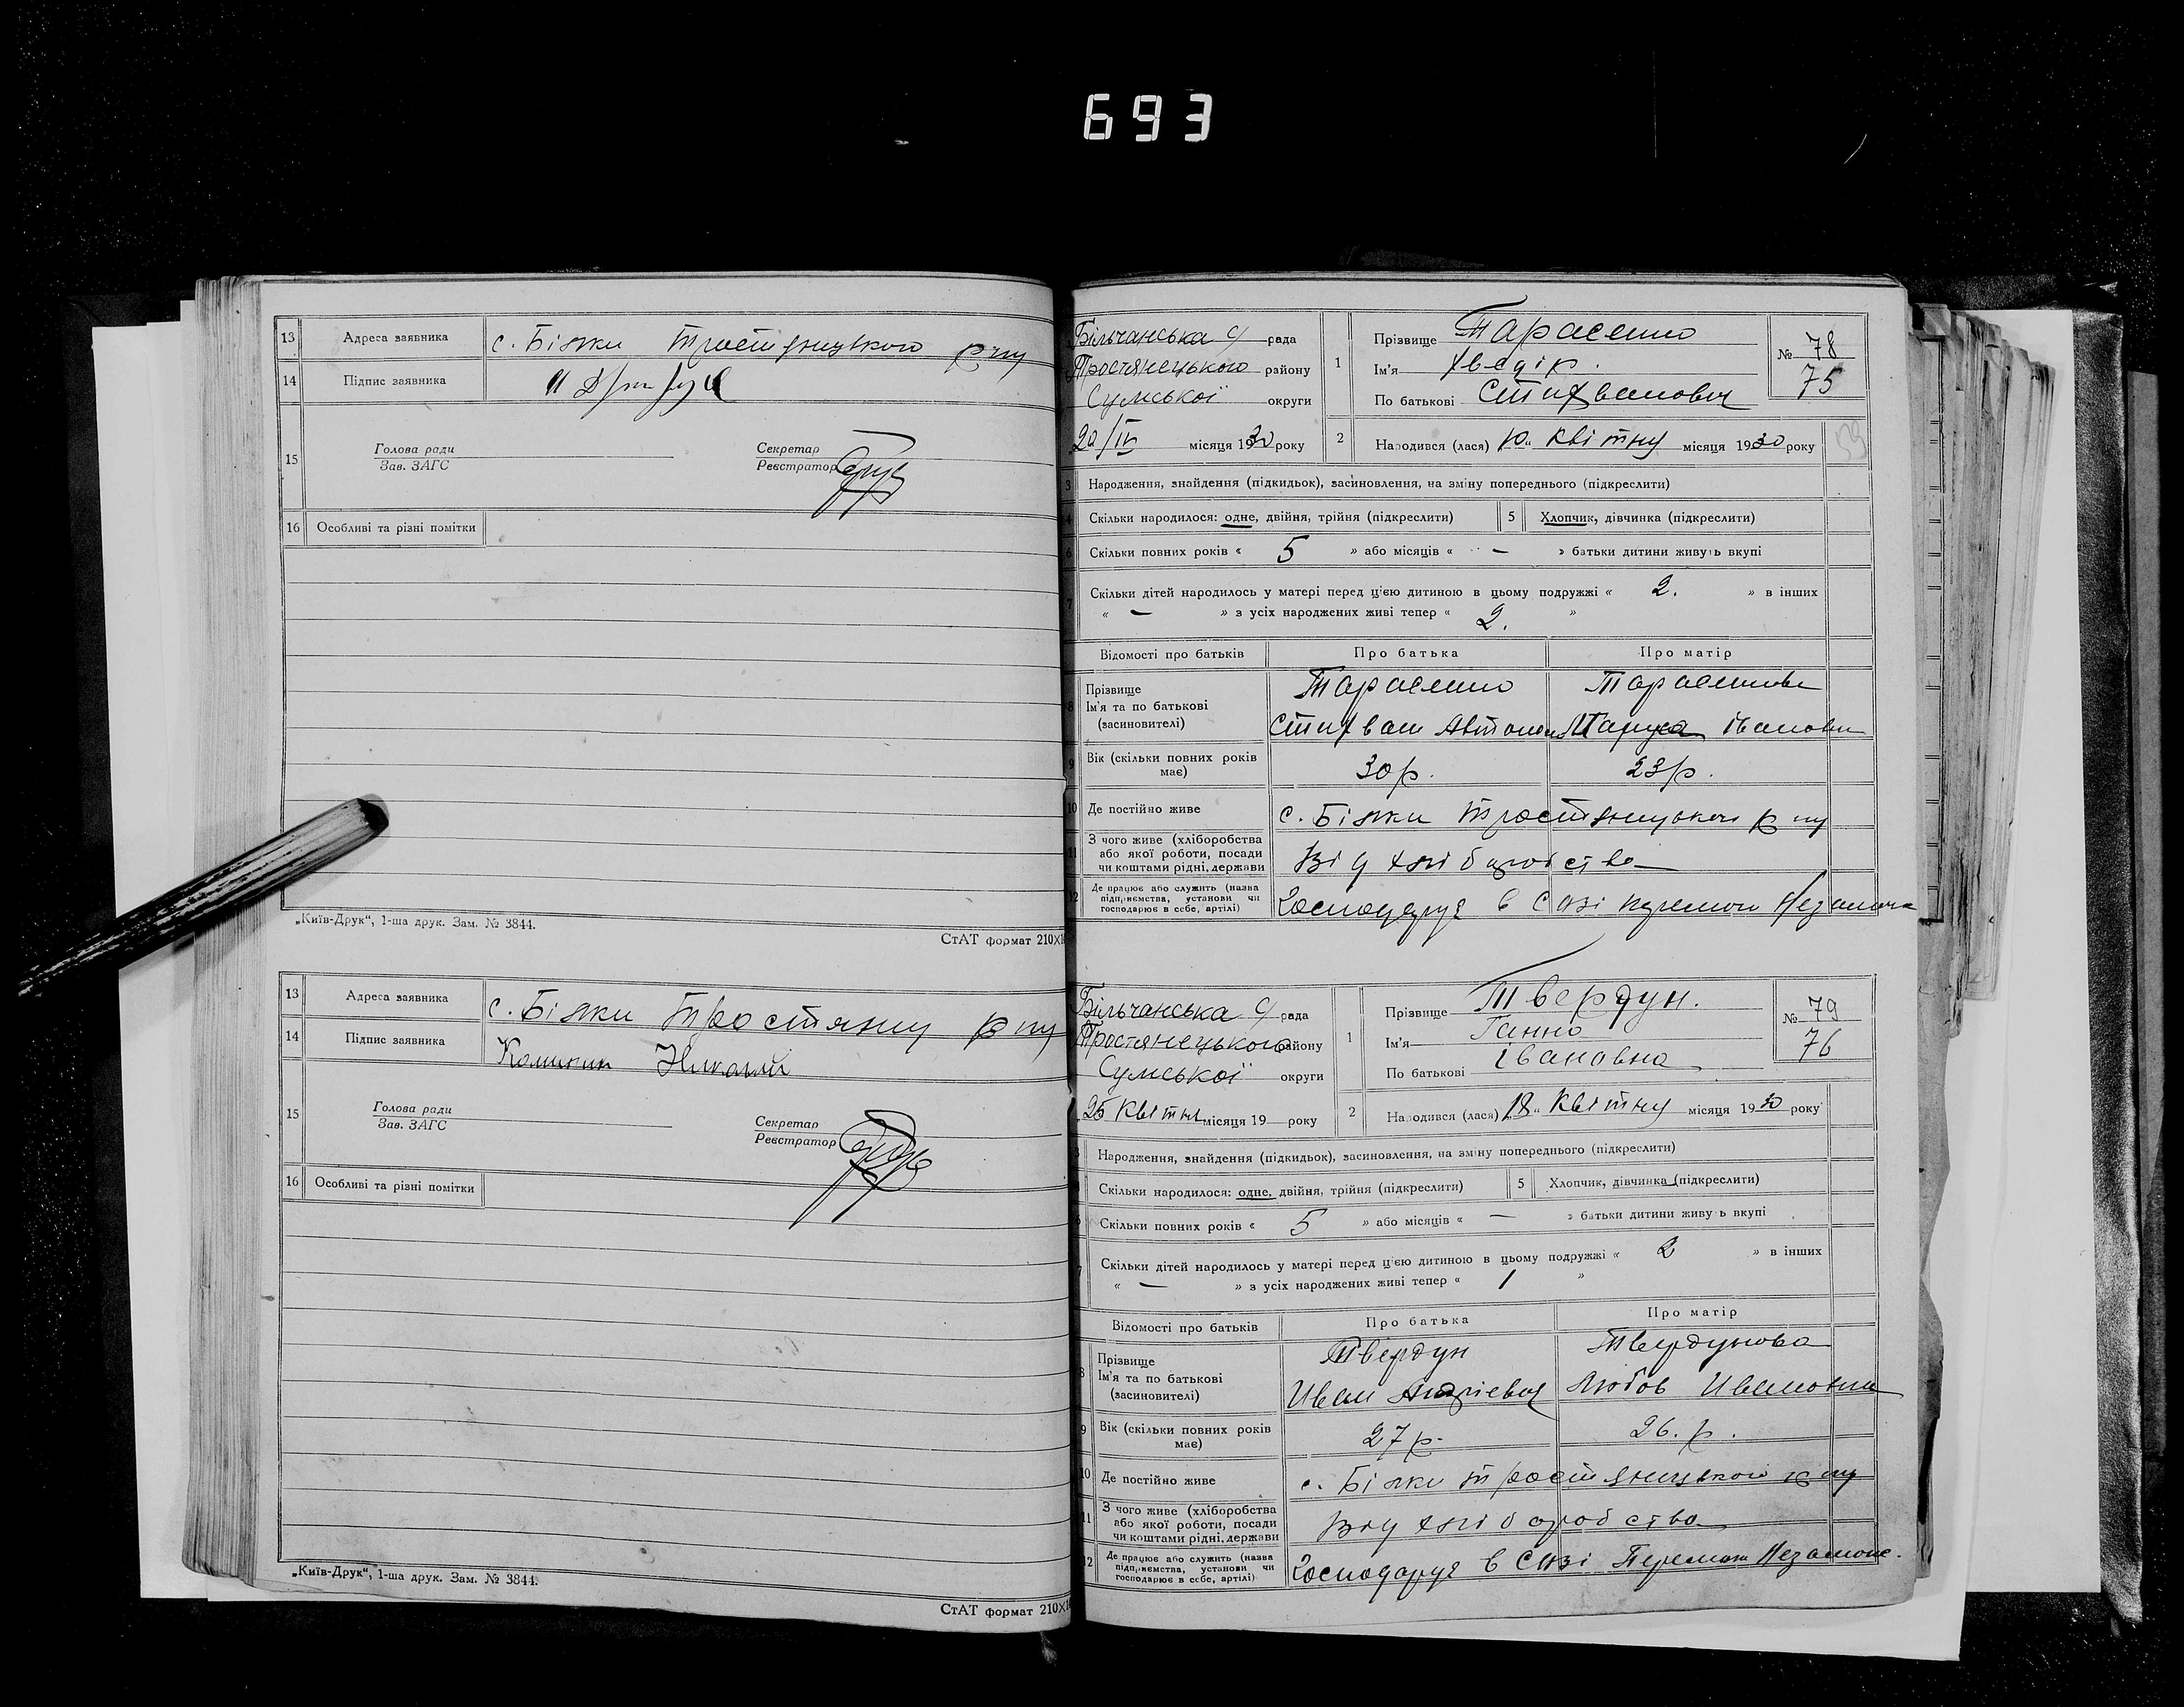 693
13 Адреса заявника с. Білки Тростянецького р-ну
14 Підпис заявника
15 Голова ради Секретар
Зав. ЗАГС Реєстратор
16 Особливі та різні помітки
„Київ-Друк“, 1-ша друк. Зам. № 3844.
СтАТ формат 210×1
13 Адреса заявника с. Білки Тростянец р-ну
14 Підпис заявника
15 Голова ради Секретар
Зав. ЗАГС Реєстратор
16 Особливі та різні помітки
„Київ-Друк“, 1-ша друк. Зам. № 3844.
СтАТ формат 210×1
Більчанська с/ рада
Тростянецького району
Сумської округи
20/IV місяця 1930 року
1 Прізвище Тарасенко
Ім'я Хведір.
По батькові Стихванович
№ 78
75
2 Народився (лася) 10 „ квітня місяця 1930 року
3 Народження, знайдення (підкидьок), засиновлення, на зміну попереднього (підкреслити)
4 Скільки народилося: одне, двійня, трійня (підкреслити) 5 Хлопчик, дівчинка (підкреслити)
6 Скільки повних років « 5 » або місяців « — » батьки дитини живуть вкупі
7 Скільки дітей народилось у матері перед цією дитиною в цьому подружжі « 2. » в інших
« — » з усіх народжених живі тепер « 2. »
Відомості про батьків Про батька Про матір
8 Прізвище Тарасенко Тарасенкова
Ім'я та по батькові
(засиновителі) Стихван Автоном Маруся Івановна
9 Вік (скільки повних років має) 30 р. 23 р.
10 Де постійно живе с. Білки Тростянецького р-ну
11 З чого живе (хліборобства
або якої роботи, посади
чи коштами рідні, держави Від хліборобства
12 Де працює або служить (назва
підприємства, установи чи
господарює в себе, артілі) Господарує в Созі Перемога Незамож
Більчанська с/ рада
Тростянецького району
Сумської округи
25 Квітня місяця 19 року
1 Прізвище Твердун.
Ім'я Ганна
По батькові Івановна
№ 79
76
2 Народився (лася) 18 „ Квітня місяця 1930 року
3 Народження, знайдення (підкидьок), засиновлення, на зміну попереднього (підкреслити)
Скільки народилося: одне, двійня, трійня (підкреслити) 5 Хлопчик, дівчинка (підкреслити)
6 Скільки повних років « 5 » або місяців « — » батьки дитини живуть вкупі
7 Скільки дітей народилось у матері перед цією дитиною в цьому подружжі « 2 » в інших
« — » з усіх народжених живі тепер « 1 »
Відомості про батьків Про батька Про матір
8 Прізвище Твердун Твердунова
Ім'я та по батькові
(засиновителі) Иван Андрієвич Любов Ивановна
9 Вік (скільки повних років має) 27 р. 26. р.
10 Де постійно живе с. Білки Тростянецького р-ну
11 З чого живе (хліборобства
або якої роботи, посади
чи коштами рідні, держави Від хліборобства
12 Де працює або служить (назва
підприємства, установи чи
господарює в себе, артілі) Господарує в Созі Перемога Незамож.